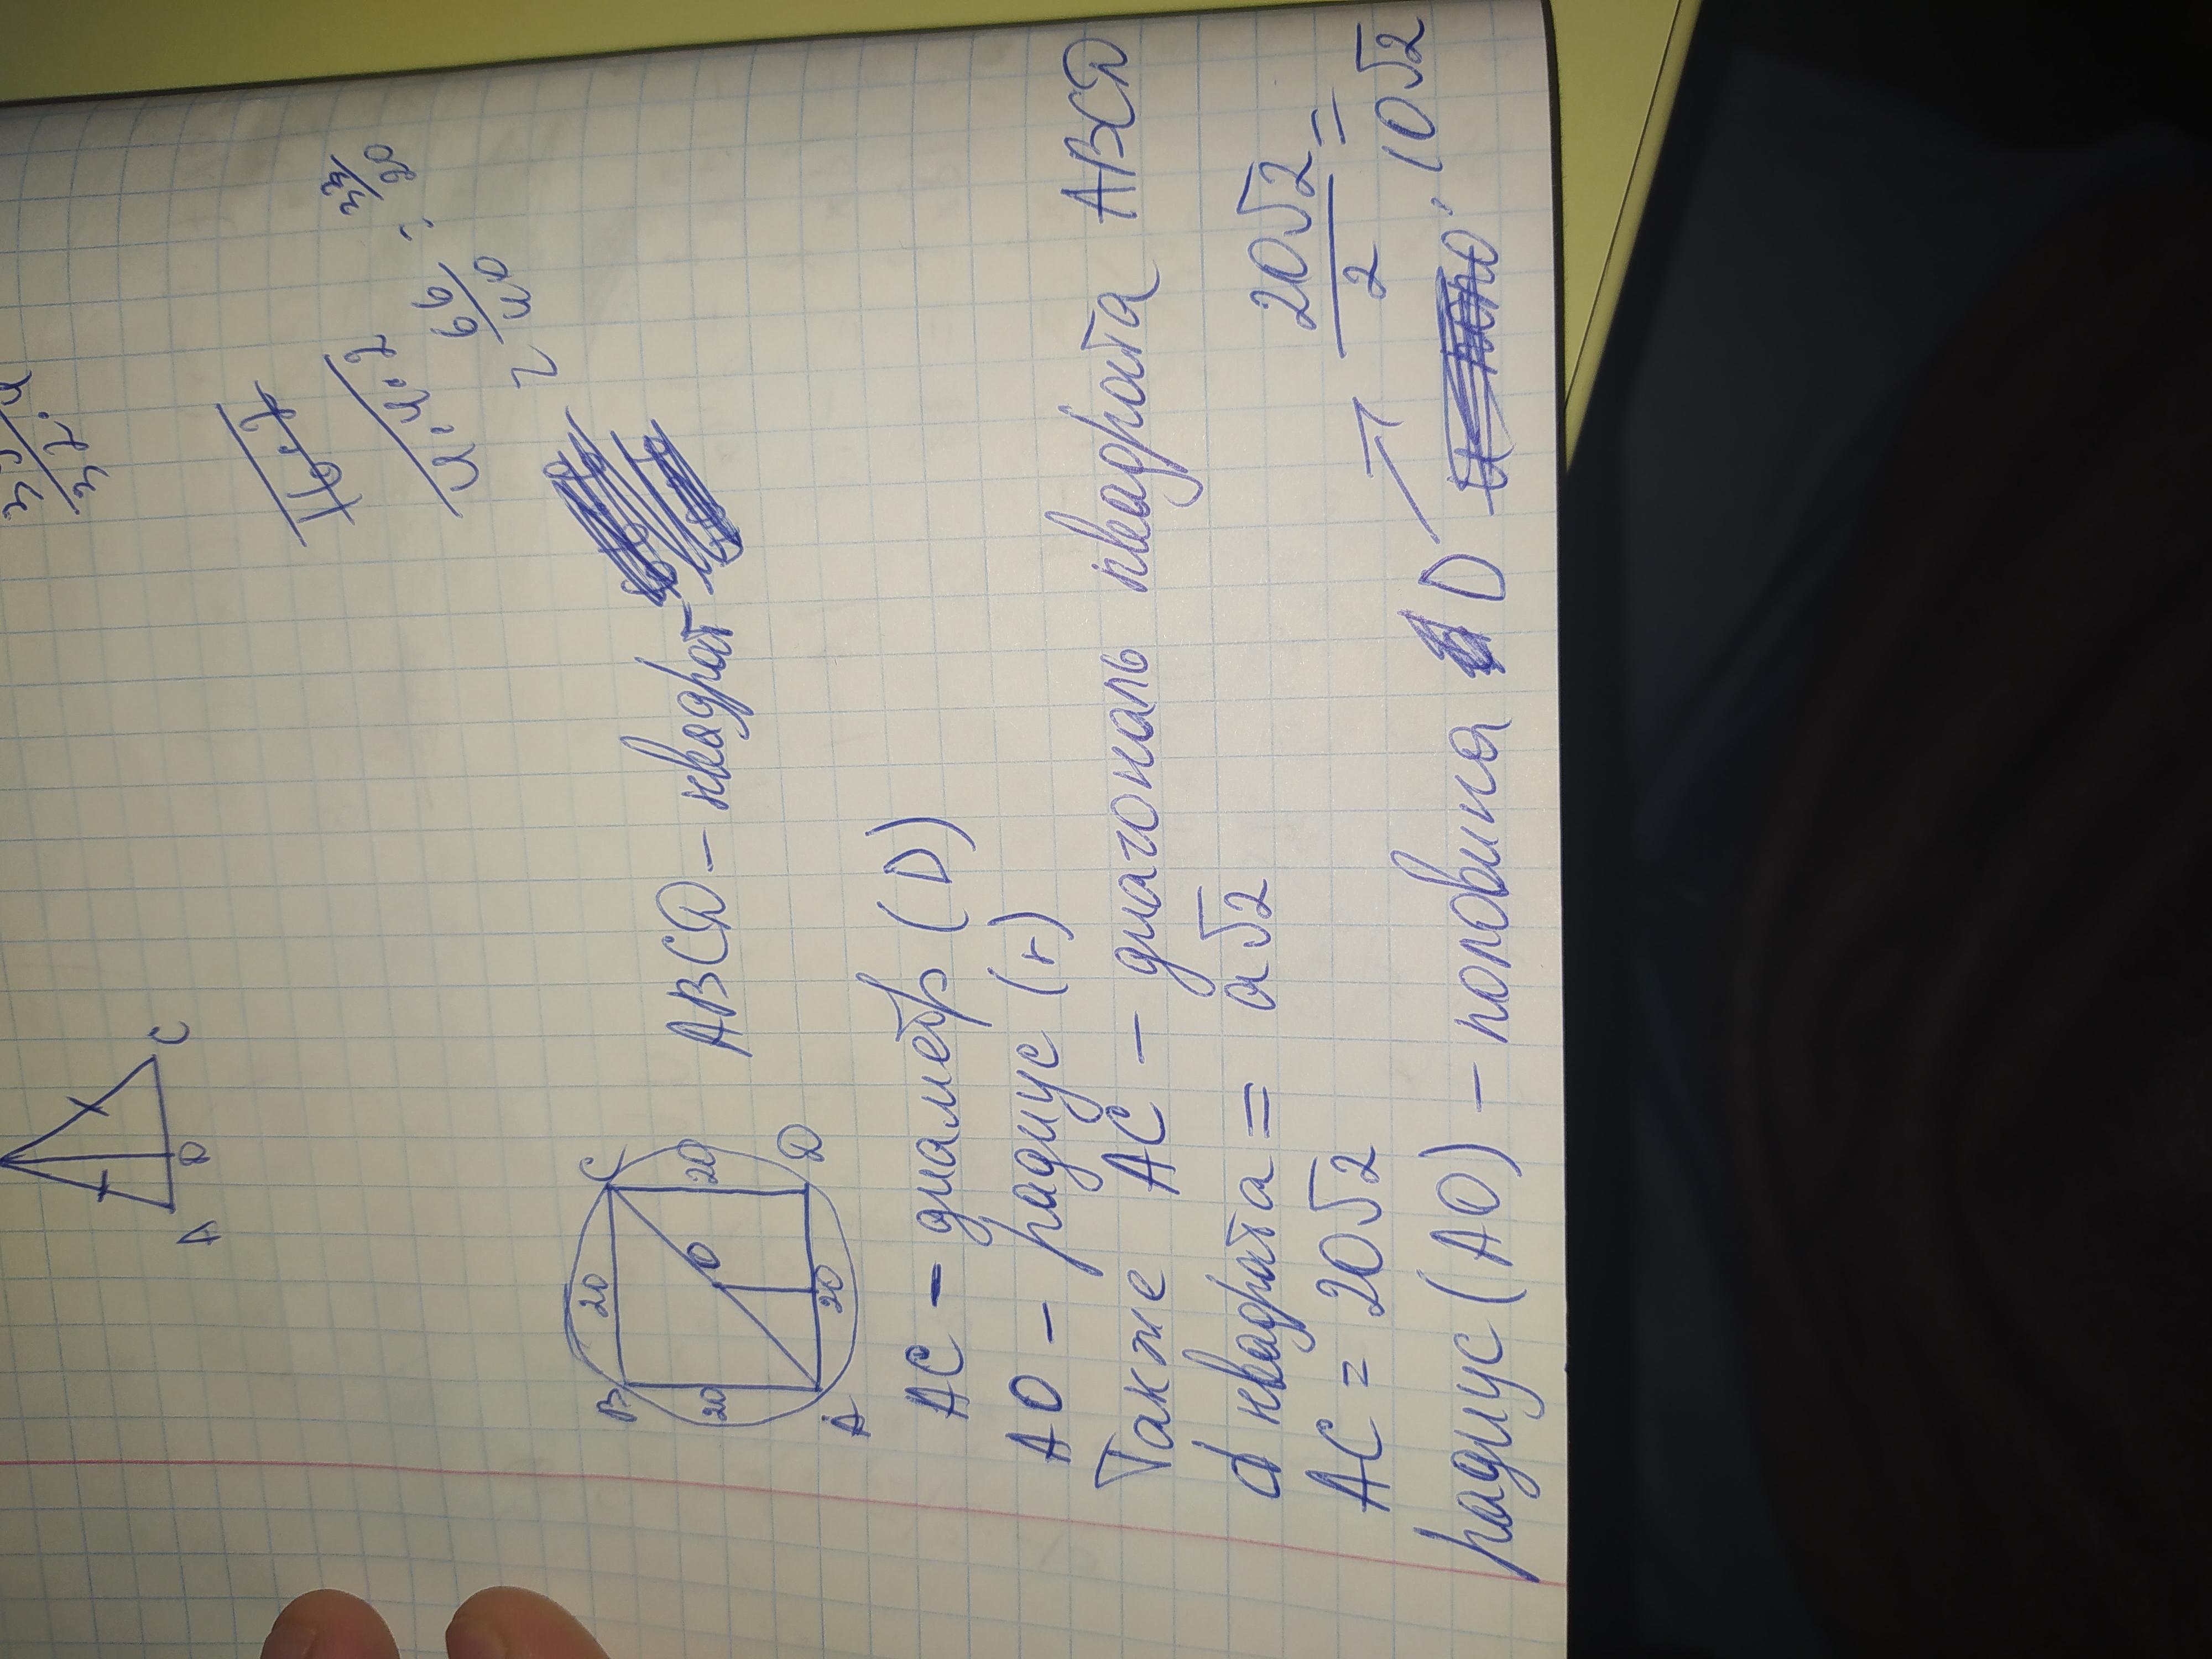 C
A D
B C
20
20 20
O
20
A D
ABCD - квадрат
AC - диаметр (D)
AO - радиус (r)
Также AC - диагональ квадрата ABCD
d квадрата = a√2
AC = 20√2
радиус (AO) - половина D → 20√2/2 = 10√2